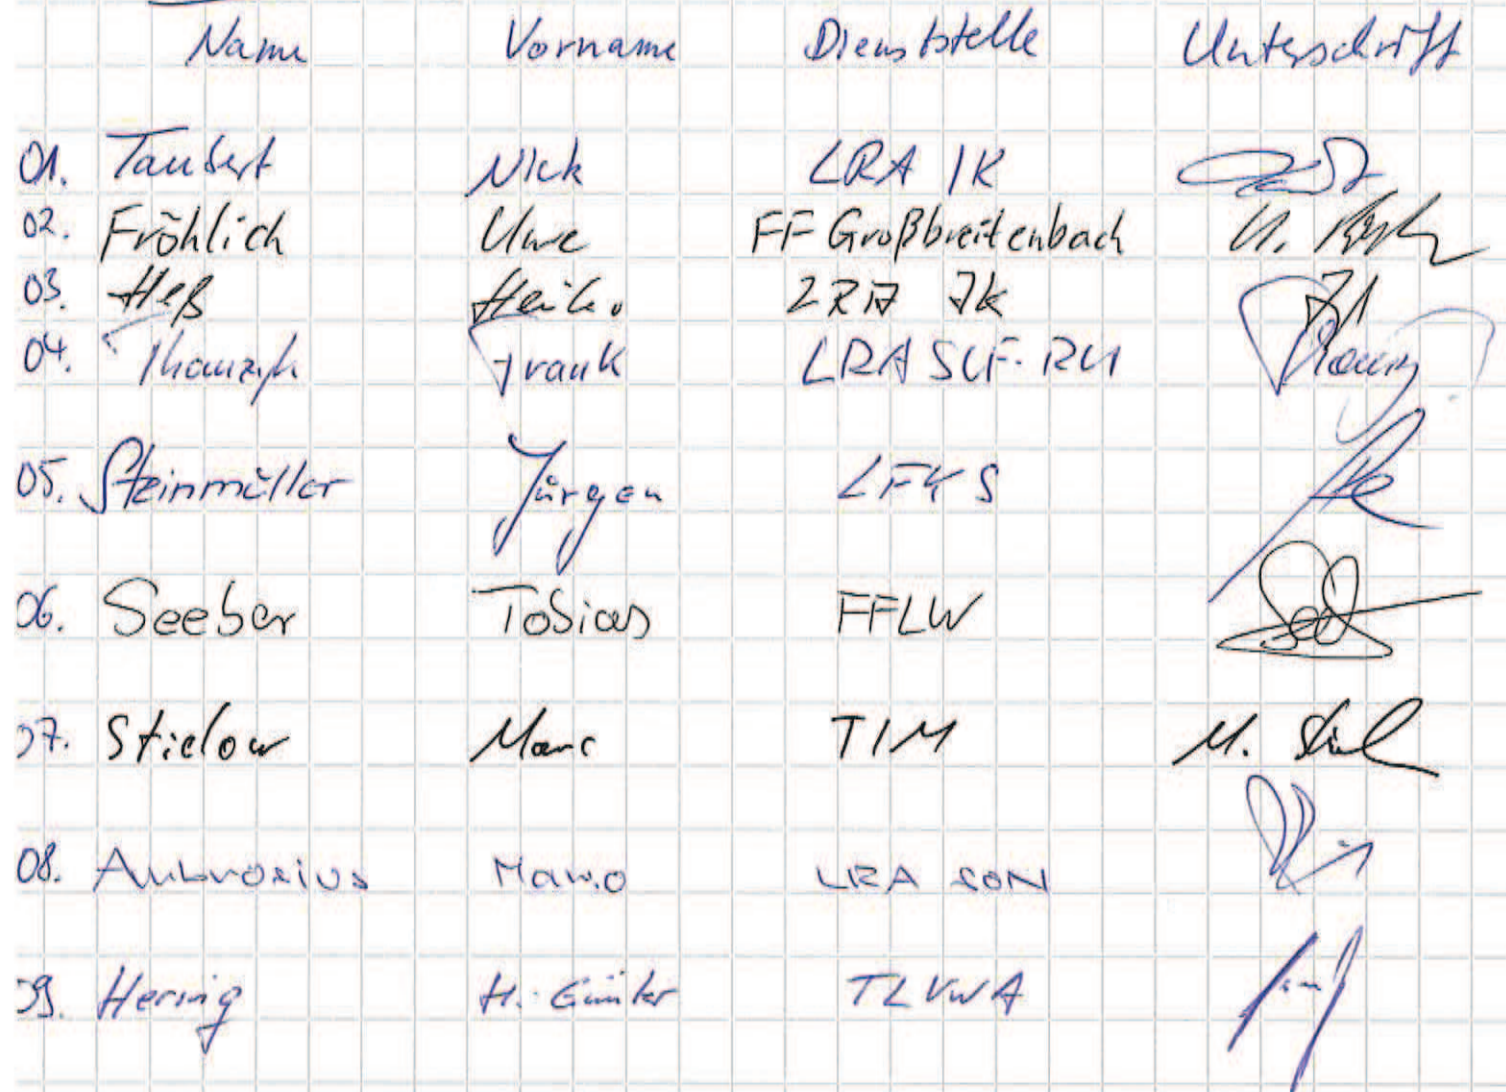 Name Vorname Dienststelle Unterschrift
01. Taubert Nick LRA IK
02. Fröhlich Uwe FF Großbreitenbach
03. Heß Heiko LRA IK
04. Frank LRA SLF-RU
05. Steinmüller Jürgen LFKS
06. Seeber Tobias FFLW
07. Stielow Marc TIM M.
08. Ambrosius Mario LRA SON
09. Hering H.-Günter TLVWA